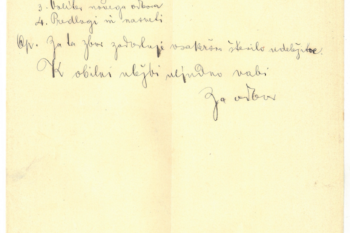 3. Volitev novega odbora
4. Predlogi in nasveti
Op. Za ta zbor zadostuje vsakršno število udeležbe.
K obilni udeležbi uljudno vabi
Za odbor